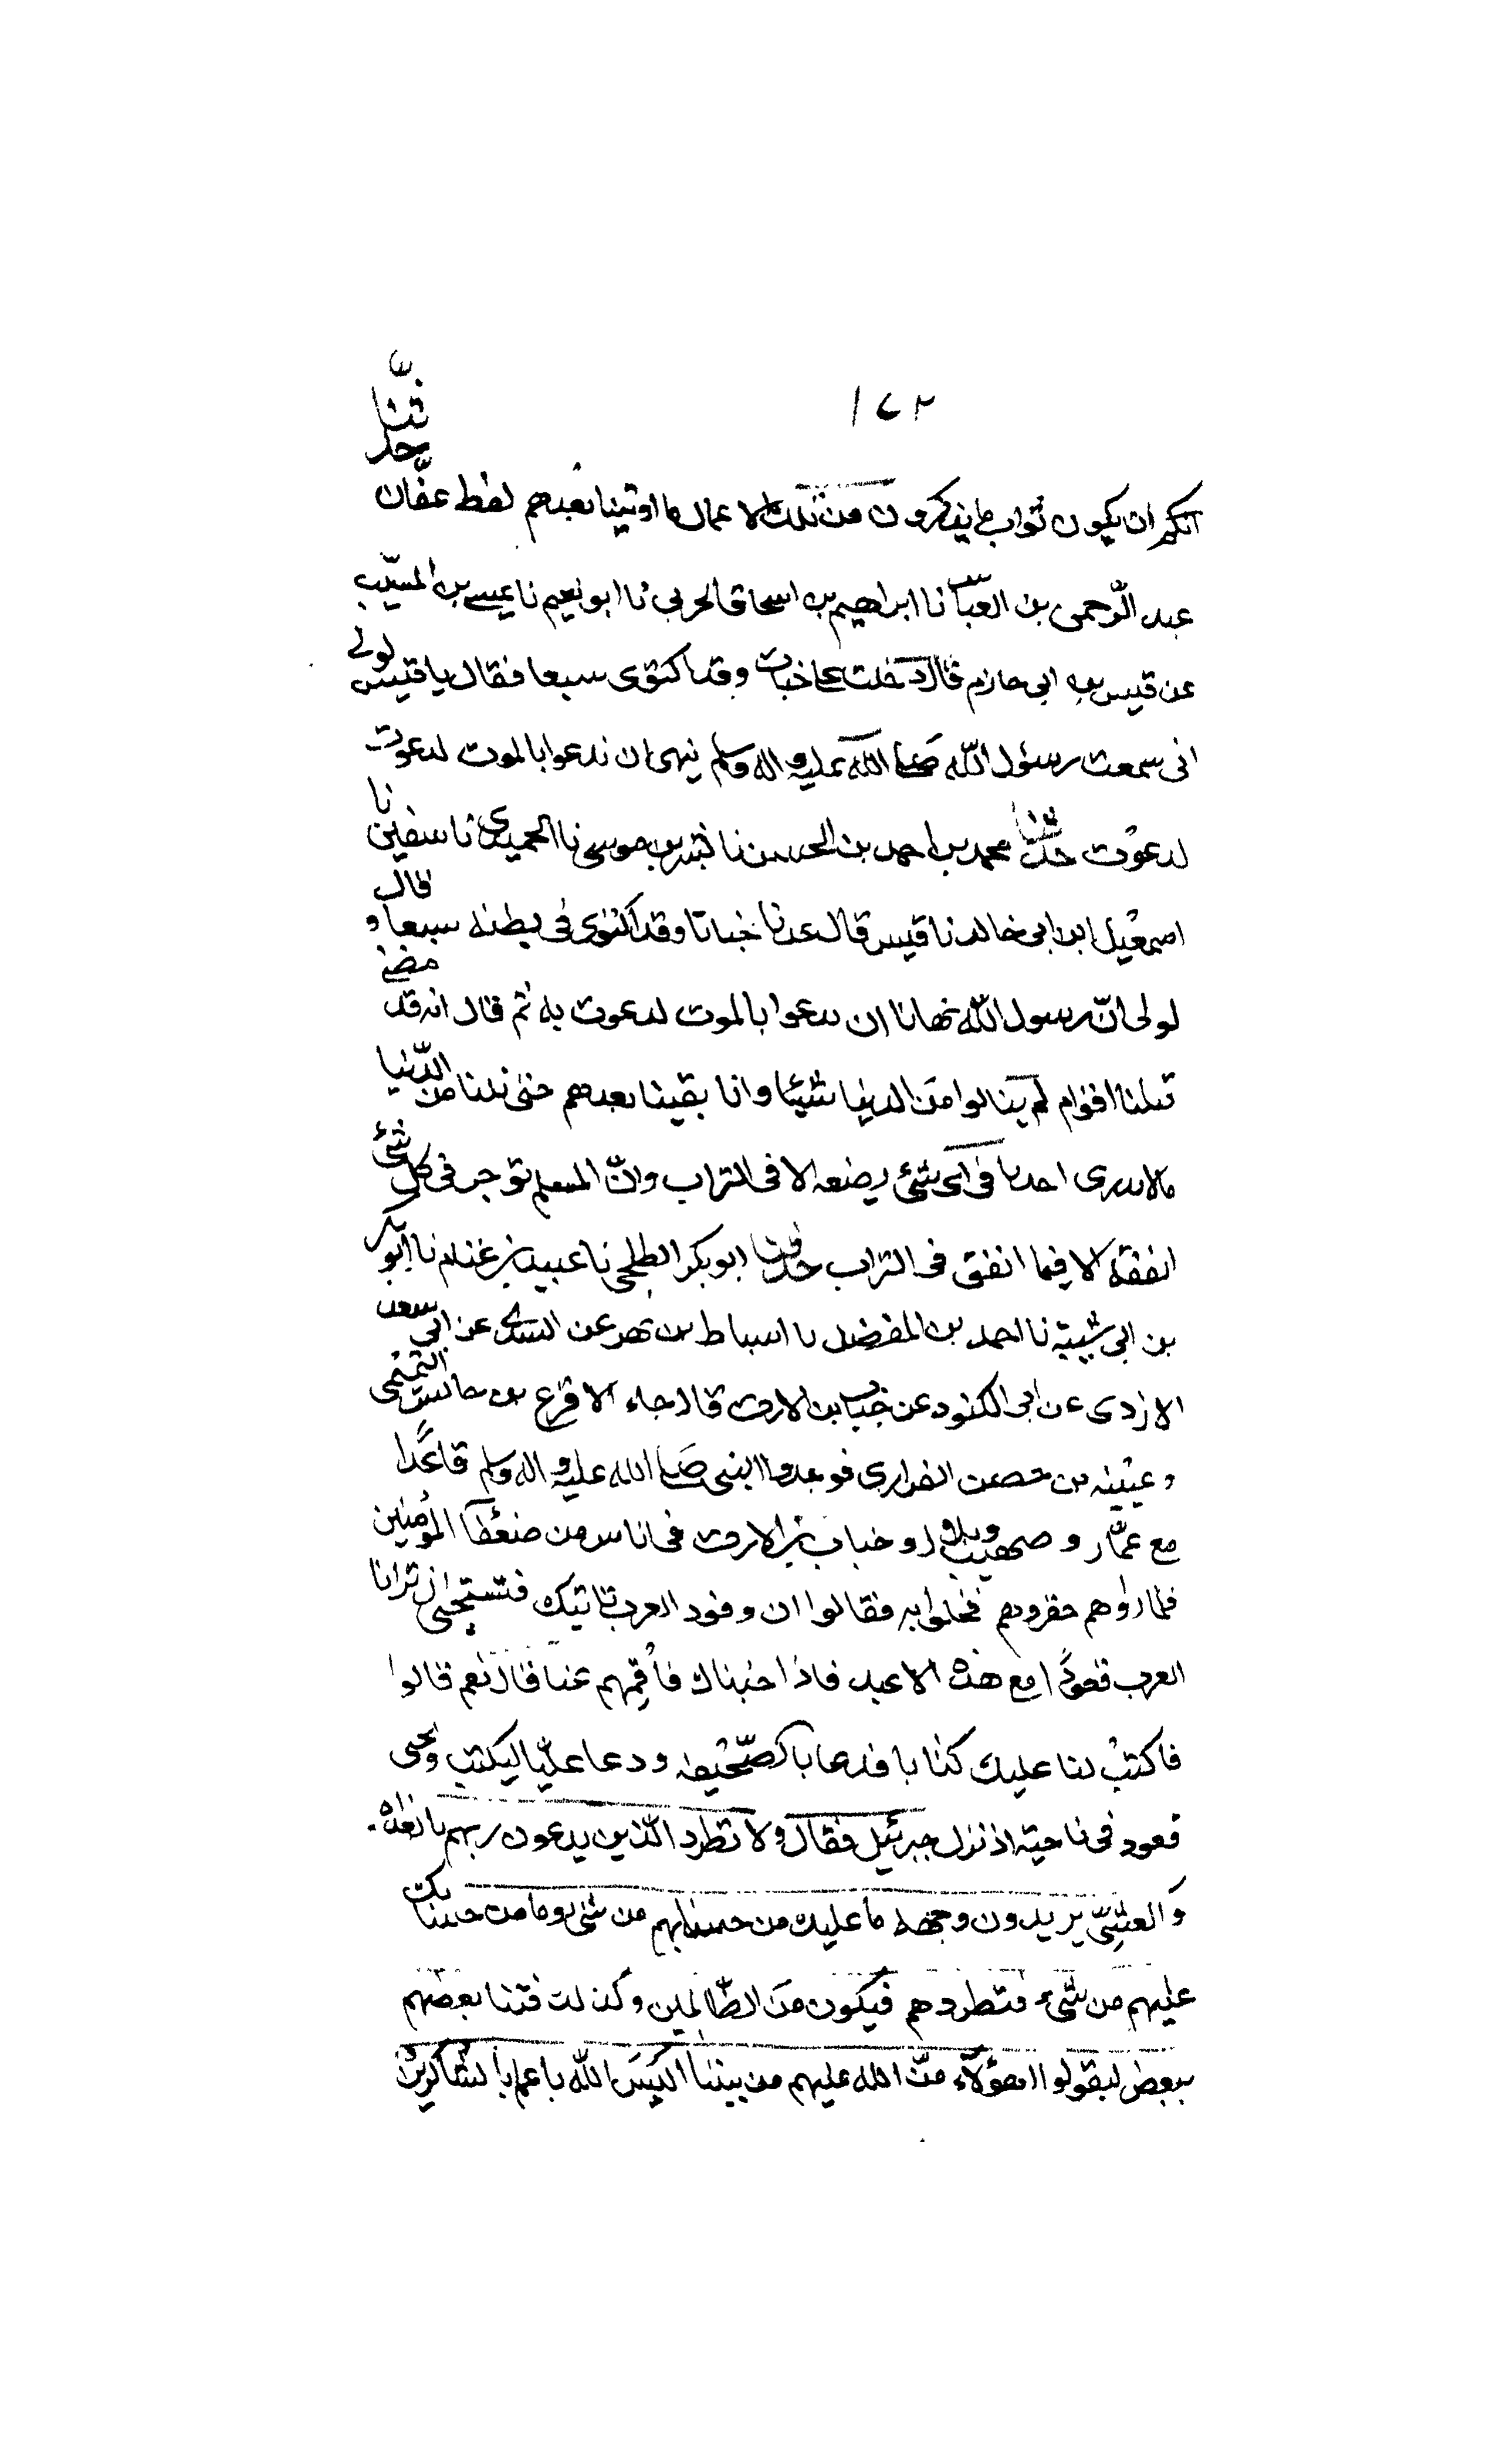 ١٧٢
انكم ان يكون ثواب ما يذكرون من تلك الاعمال ما اوتينا بعدهم لفظ عفّان حدّثنا
عبد الرّحمن بن العبّاس نا ابراهيم بن اسحاق الحربي نا ابو نعيم نا عيسى بن المسيّب
عن قيس بن ابى حازم قال دخلت على خباب وقد اكتوى سبعا فقال يا قيس لولى
انى سمعت رسول الله صلى الله عليه واله وسلم ينهى ان ندعوا بالموت لدعوت
لدعوت حدثنا محمد بن احمد بن الحسن نا بشر بن موسى نا الحميدى نا سفين نا
اسمعيل ابن ابى خالد نا قيس قال عدنا خبابا وقد اكتوى فى بطنه سبعا و قال
لولى انّ رسول الله نهانا ان ندعوا بالموت لدعوت به ثم قال انه قد مضى
قبلنا اقوام لم ينالوا من الدنيا شيئا وانا بقينا بعدهم حتى نلنا من الدّنيا
مالا ندرى احدنا فى اى شئ يضعه الا فى التراب وانّ المسلم توجر فى كل شئ
انفقه الا فيما انفق فى التراب حدثنا ابو بكر الطلحى نا عبيد بن غنام نا ابو بكر
بن ابى شيبة نا احمد بن المفضل نا اسباط بن نصر عن السدى عن ابى سعد
الازدى عن ابى الكنود عن خباب بن الارت قال جاء الاقرع بن حابس التميمى
وعيينه بن حصن الفزارى فوجدوا النبى صلى الله عليه واله وسلم قاعدًا
مع عمّار و صهيب وبلال و خباب بن الارت فى اناس من ضعفآ المؤمنين
فلما راوهم حقروهم فخلوا به فقالوا ان وفود العرب تاتيك فتستحيى ان ترانا
العرب قعودًا مع هذه الاعبد فاذا جئناك فاقمهم عنا قال نعم قالوا
فاكتب لنا عليك كتابا فدعا بالصّحيفه ودعا عليّا ليكتب ونحن
قعود فى ناحية اذ نزل جبرئيل فقال ولا تطرد الذين يدعون ربهم بالغداة
والعشىّ يريدون وجهه ما عليك من حسابهم من شئ وما من حسابك
عليهم من شىء فتطردهم فيكون من الظّالمين وكذلك فتنا بعضهم
ببعض ليقولوا اهؤلاء منّ الله عليهم من بيننا اليس الله باعلم بالشاكرين